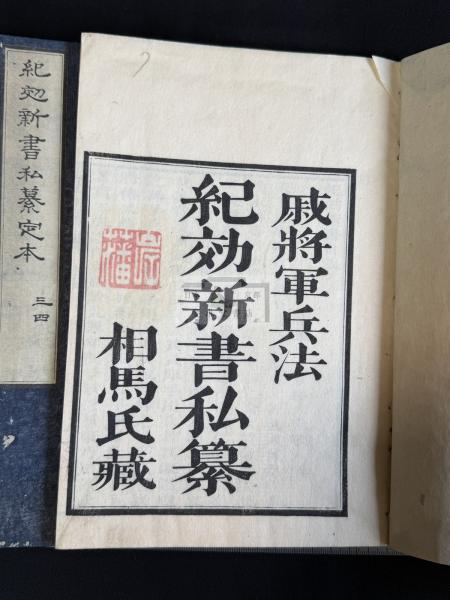 戚將軍兵法
紀効新書私纂
相馬氏藏
紀効新書私纂定本
三四